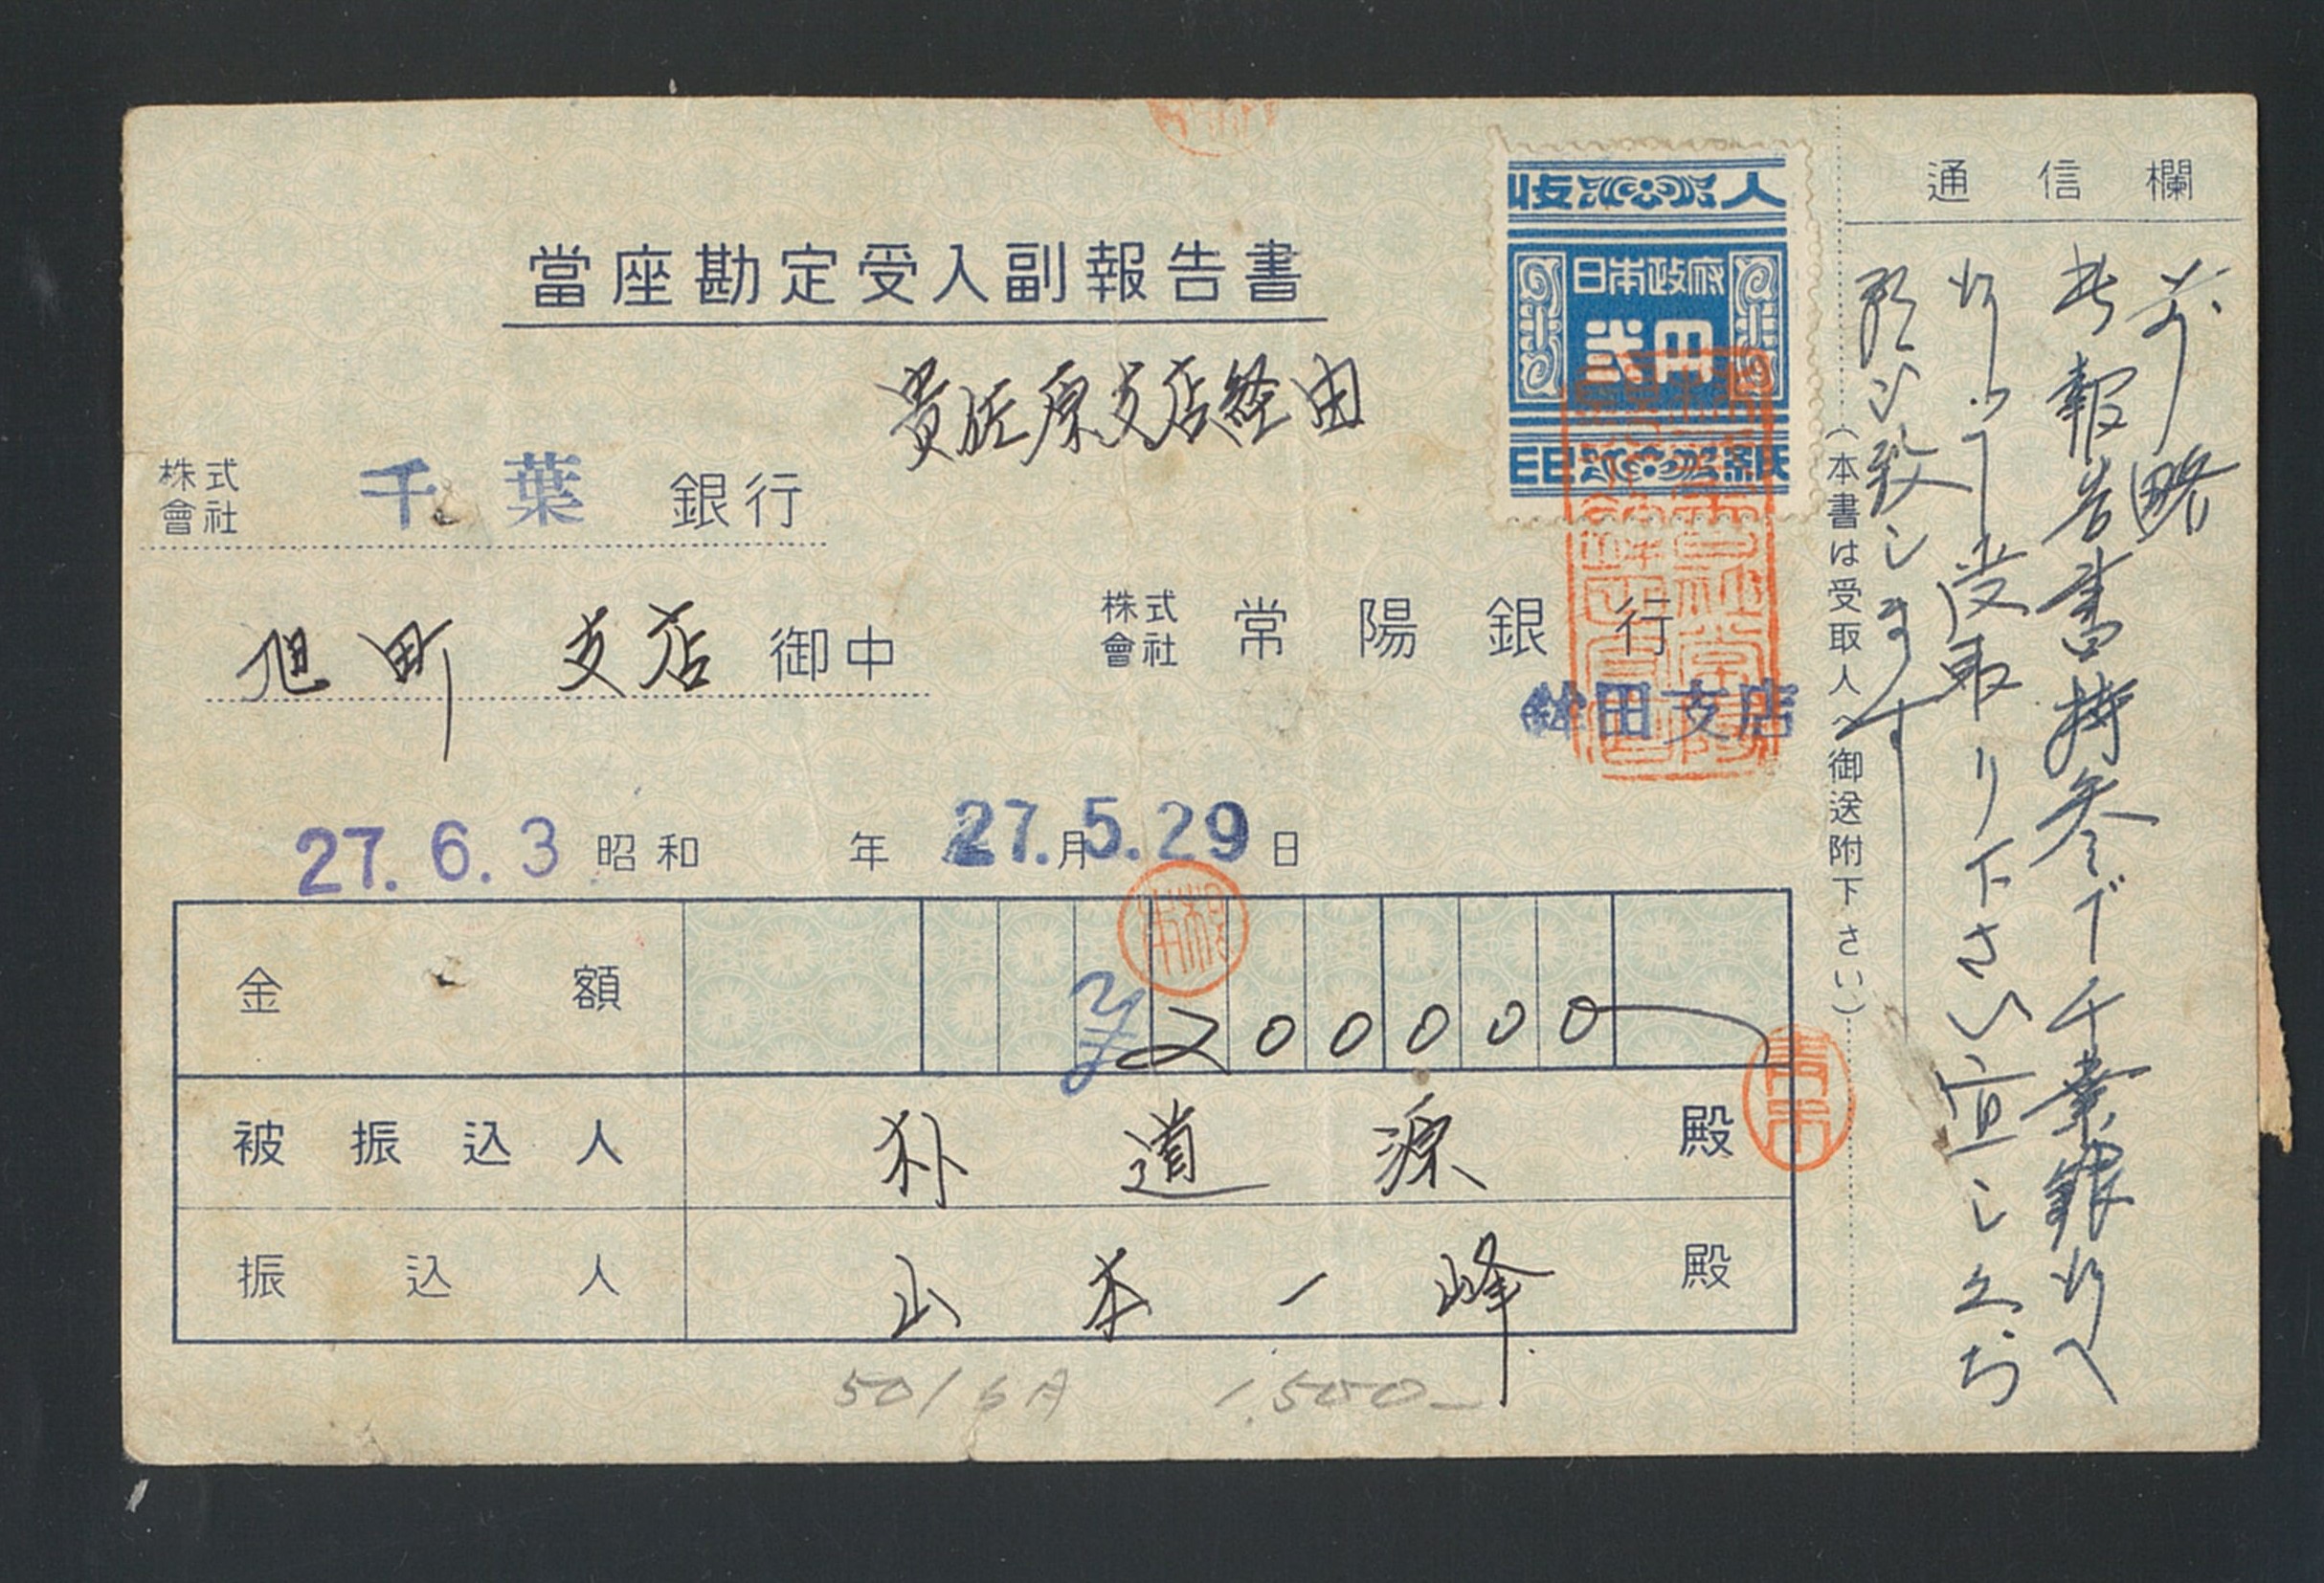 當座勘定受入副報告書
貴佐原支店経由
株式會社 千葉 銀行
旭町 支店 御中
株式會社 常陽銀行
鉾田支店
27.6.3 昭和 年 月 日
27.5.29
金額 ¥200000
被振込人 朴道源 殿
振込人 山本一峰 殿
50/6A 1,500-
収入
日本政府
弐円
印紙
(本書は受取人へ御送附下さい)
通信欄
前略
此報告書持参で千葉銀行へ
行って受取り下さい宜しくお
願い致します